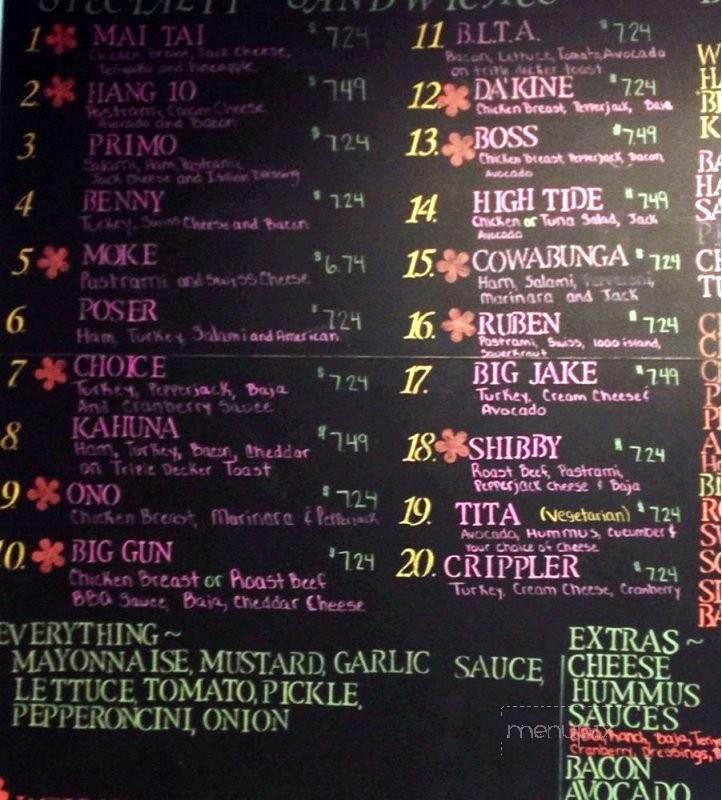 SPECIALTY SANDWICHES
1 MAI TAI $7.24
Chicken Breast, Jack Cheese,
Teriyaki and Pineapple
2 HANG 10 $7.49
Pastrami, Cream Cheese
Avocado and Bacon
3. PRIMO $7.24
Salami, Ham, Pastrami,
Jack Cheese and Italian Dressing
4 BENNY $7.24
Turkey, Swiss Cheese and Bacon
5 MOKE $6.74
Pastrami and Swiss Cheese
6. POSER $7.24
Ham, Turkey, Salami and American
7 CHOICE $7.24
Turkey, Pepperjack, Baja
And Cranberry Sauce
8 KAHUNA $7.49
Ham, Turkey, Bacon, Cheddar
on Triple Decker Toast
9 ONO $7.24
Chicken Breast, Marinara & Pepperjack
10. BIG GUN $7.24
Chicken Breast or Roast Beef
BBQ Sauce, Baja, Cheddar Cheese
11 B.L.T.A. $7.24
Bacon, Lettuce, Tomato, Avocado
on triple decker toast
12. DA KINE $7.24
Chicken Breast, Pepperjack, Baja
13. BOSS $7.49
Chicken Breast, Pepperjack, Bacon,
Avocado
14. HIGH TIDE $7.49
Chicken or Tuna Salad, Jack
Avocado
15. COWABUNGA $7.24
Ham, Salami, Pepperoni,
Marinara and Jack
16. RUBEN $7.24
Pastrami, Swiss, 1000 island,
Sauerkraut
17. BIG JAKE $7.49
Turkey, Cream Cheese &
Avocado
18. SHIBBY $7.24
Roast Beef, Pastrami,
Pepperjack cheese & Baja
19. TITA (vegetarian) $7.24
Avocado, Hummus, Cucumber &
Your Choice of Cheese
20. CRIPPLER $7.24
Turkey, Cream Cheese, Cranberry
EVERYTHING ~
MAYONNAISE, MUSTARD, GARLIC SAUCE,
LETTUCE, TOMATO, PICKLE,
PEPPERONCINI, ONION
EXTRAS ~
CHEESE
HUMMUS
SAUCES
Ranch, Baja,
Cranberry, Dressings,
BACON
AVOCADO